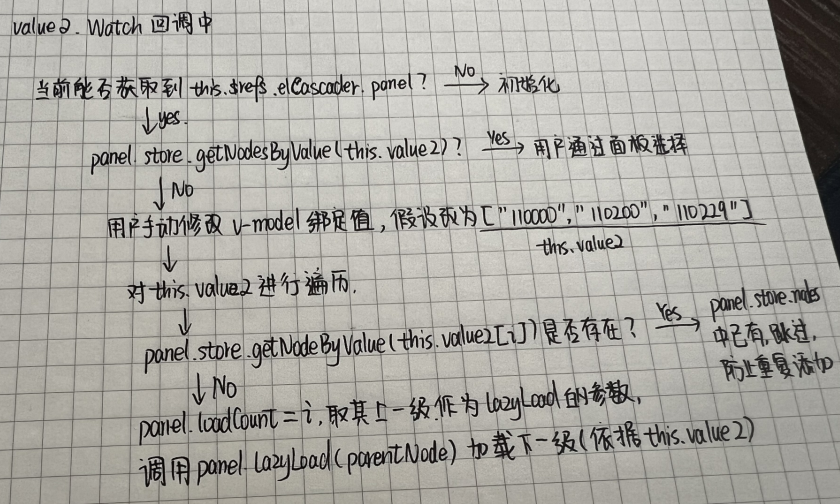 value2. Watch 回调中
当前能否获取到 this.$refs.elCascader.panel? No → 初始化
↓yes.
panel.store.getNodesByValue(this.value2)? Yes → 用户通过面板选择
↓No
用户手动修改 v-model 绑定值, 假设改为["110000","110200","110229"]
this.value2
↓
对this.value2进行遍历.
↓
panel.store.getNodeByValue(this.value2[i])是否存在? Yes → panel.store.nodes
中已有,跳过,
防止重复添加
↓No
panel.loadCount=i,取其上一级作为lazyLoad的参数,
调用panel.lazyLoad(parentNode)加载下一级(依据this.value2)